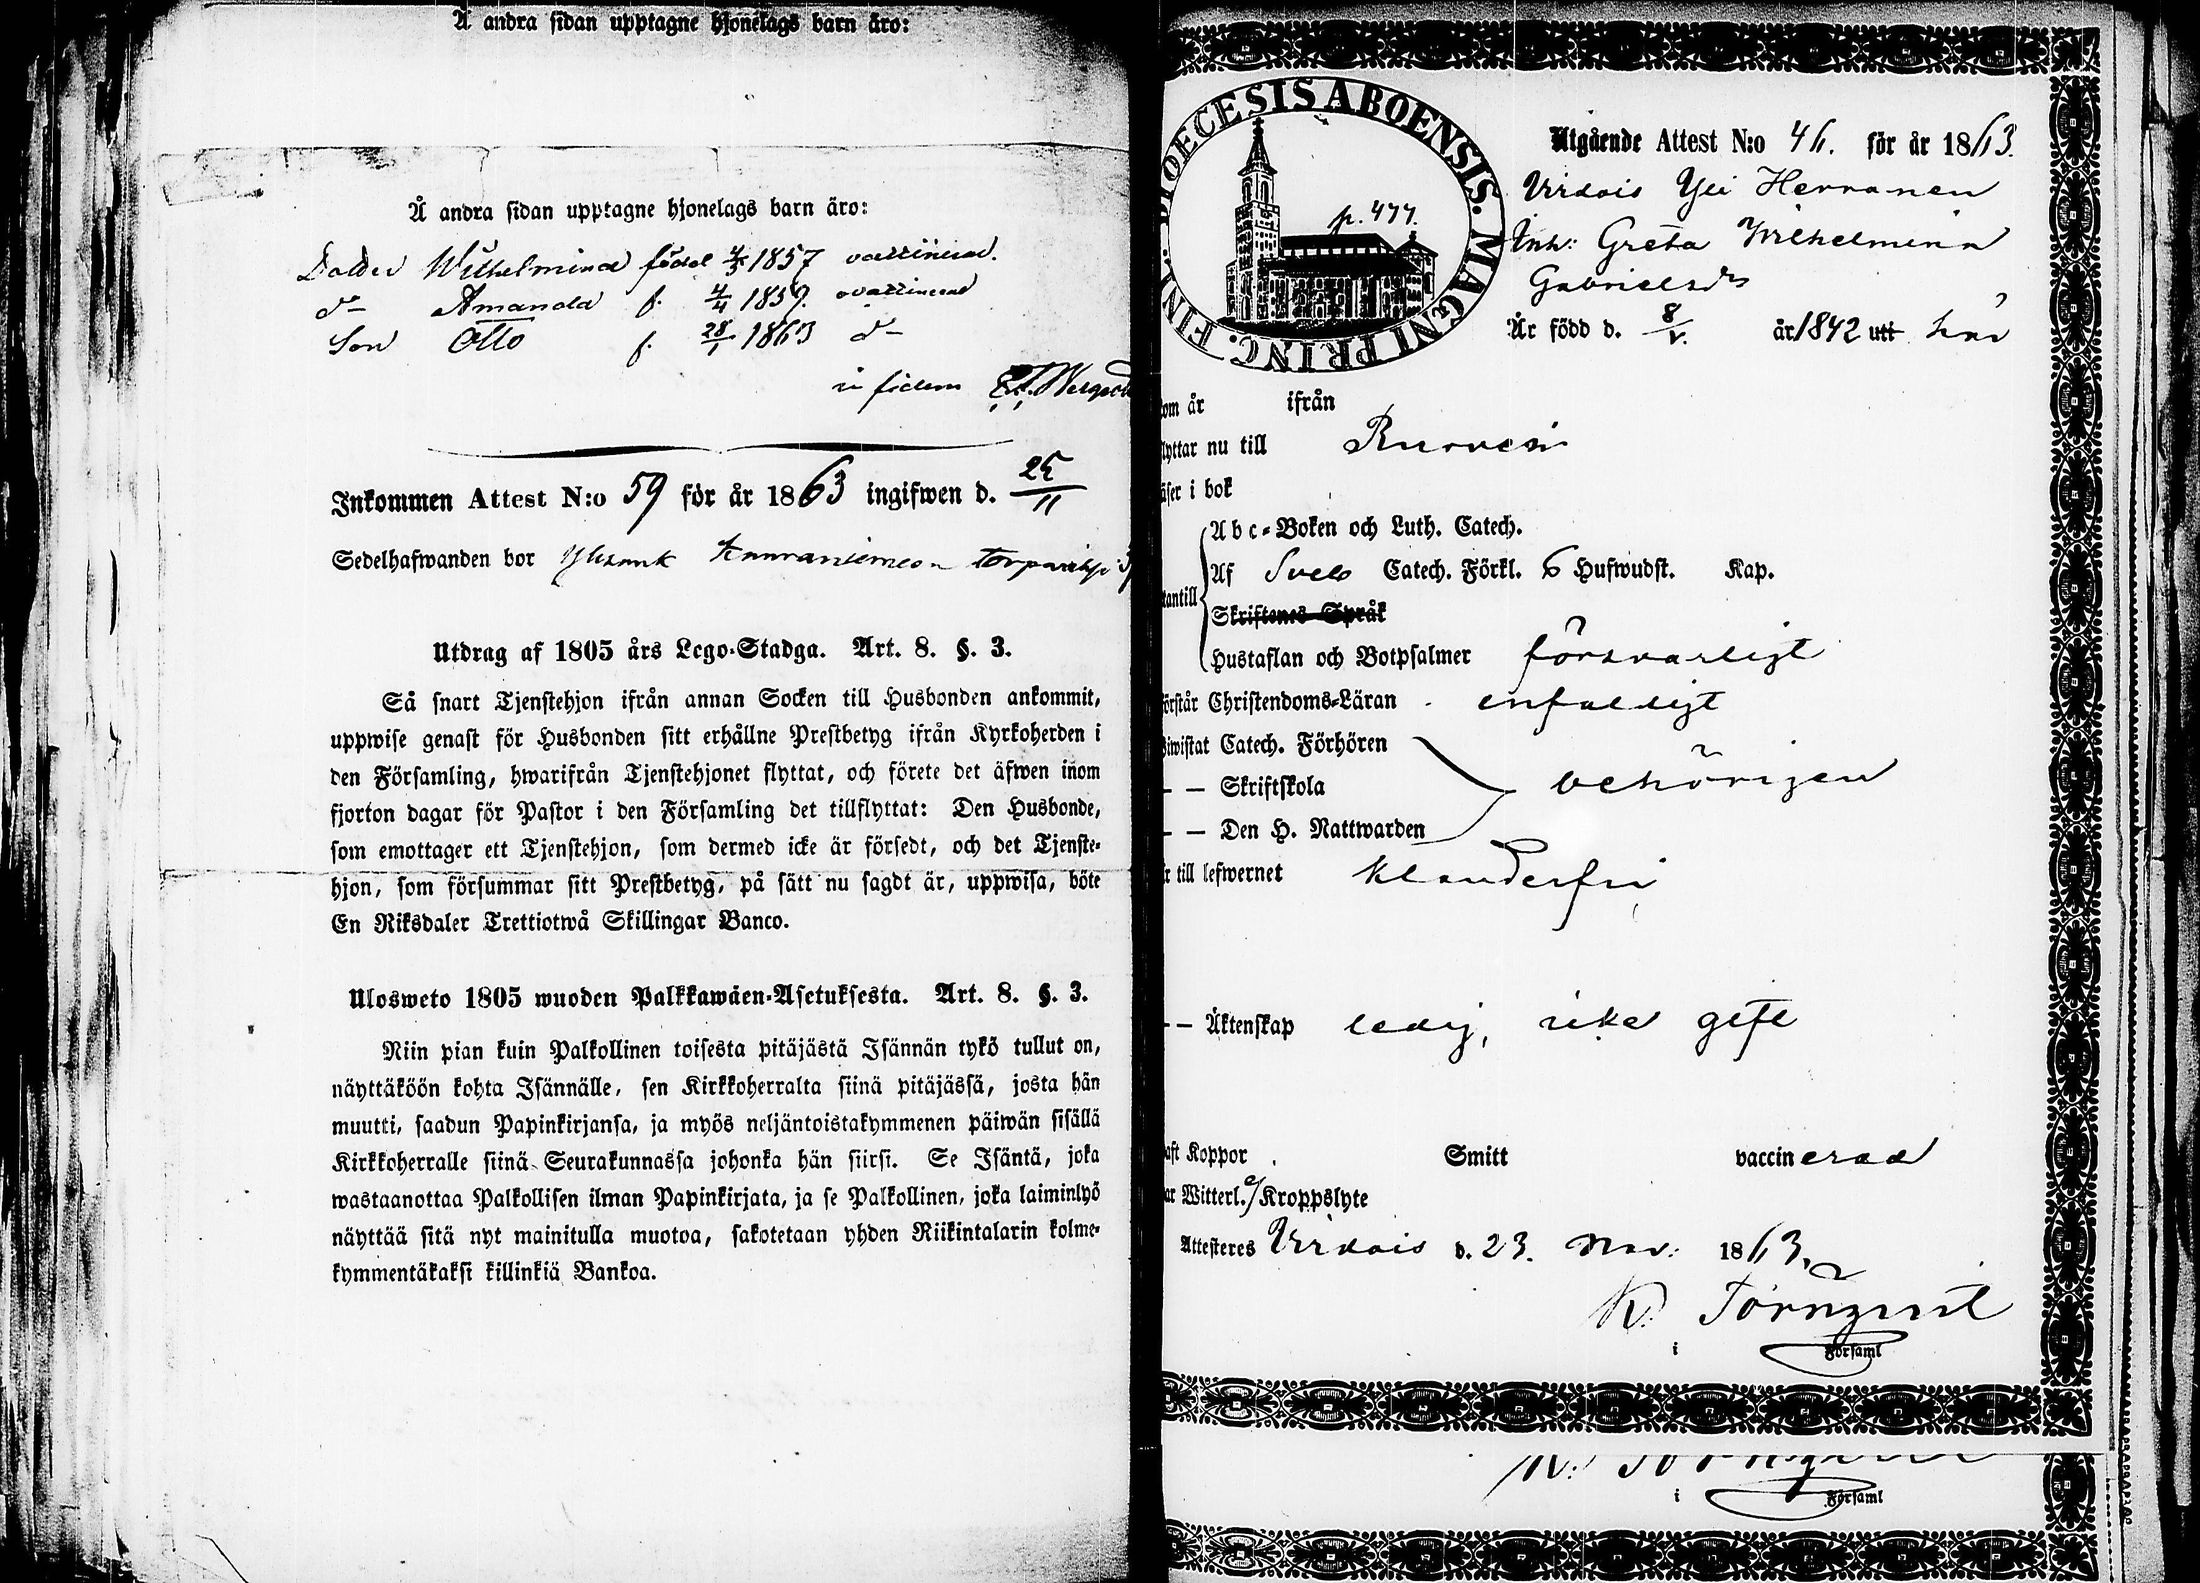 Å andra sidan upptagne hjonelags barn äro:
Å andra sidan upptagne hjonelags barn äro:
Dotter Wilhelmina född 1857 vaccinerad.
d- Amanda f. 4/4 1859. ovaccinerad
Son Otto f. 28/1 1863 d-
in fidem
Inkommen Attest N:o 59 för år 1863 ingifwen d. 25/11
Sedelhafwanden bor
Utdrag af 1805 års Lego-Stadga. Art. 8. §. 3.
Så snart Tjenstehjon ifrån annan Socken till Husbonden ankommit,
uppwise genast för Husbonden sitt erhållne Prestbetyg ifrån Kyrkoherden i
den Församling, hwarifrån Tjenstehjonet flyttat, och förete det äfwen inom
fjorton dagar för Pastor i den Församling det tillflyttat: Den Husbonde,
som emottager ett Tjenstehjon, som dermed icke är försedt, och det Tjenste-
hjon, som försummar sitt Prestbetyg, på sätt nu sagdt är, uppwisa, böte
En Riksdaler Trettiotwå Skillingar Banco.
Ulosweto 1805 wuoden Palkkawäen-Asetuksesta. Art. 8. §. 3.
Niin pian kuin Palkollinen toisesta pitäjästä Isännän tykö tullut on,
näyttäköön kohta Isännälle, sen Kirkkoherralta siinä pitäjässä, josta hän
muutti, saadun Papinkirjansa, ja myös neljäntoistakymmenen päiwän sisällä
Kirkkoherralle siinä Seurakunnassa johonka hän siirsi. Se Isäntä, joka
wastaanottaa Palkollisen ilman Papinkirjata, ja se Palkollinen, joka laiminlyö
näyttää sitä nyt mainitulla muotoa, sakotetaan yhden Riikintalarin kolme-
kymmentäkaksi killinkiä Bankoa.
DIOECESIS ABOENSIS. MAGNI PRINC. FINL.
p. 477.
Utgående Attest N:o 46. för år 1863.
Virdois Yli Herranen
Inh: Greta Wilhelmina
Gabrielsdr
Är född d. 8/V. år 1842 utt här
om år ifrån
lyttar nu till Ruovesi
äser i bok
Abc-Boken och Luth. Catech.
Af Svebo Catech. Förkl. 6 Hufwudst. Kap.
tantill
Skriftenes Språk
Hustaflan och Botpsalmer försvarligt
örstår Christendoms-Läran enfaldigt
iwistat Catech. Förhören
- - Skriftskola behörigen
- - Den H. Nattwarden
r till lefwernet klanderfri
- - Äktenskap ledig, icke gift
aft Koppor Smitt vaccinerad
ar Witterl. Kroppslyte
Attesteres Virdois d. 23. Nov: 1863.
K. Törnqvist
i Församl
K. Törnqvist
i Församl